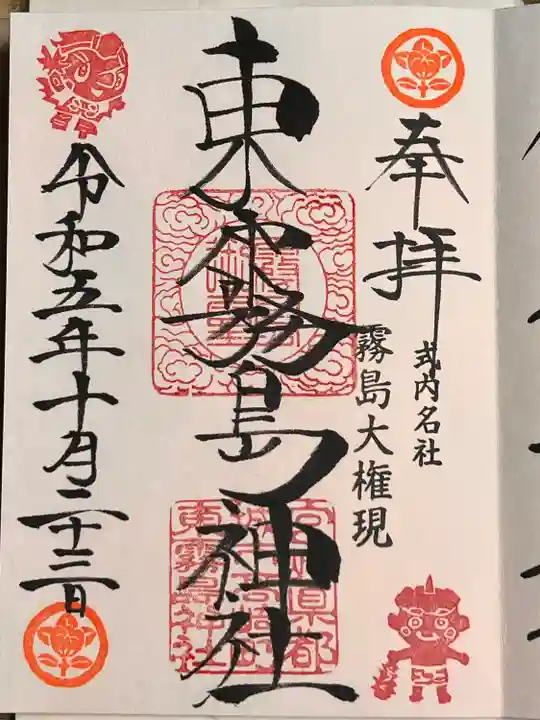 奉拝
式内名社
霧島大権現
東霧島神社
令和五年十月二十三日
東霧島神社